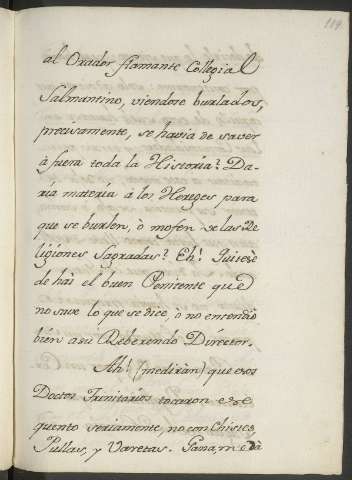 119
al Orador flamante Collegial
Salmantino, viendose burlados,
precisamente, se havia de saver
à fuera toda la Historia? Da-
ria materia à los Hereges para
que se burlen, ò mofen de las Re
ligiones Sagradas? Eh! Quitese
de haì el buen Penitente que
no save lo que se dice, ò no entendiò
bien a su Reberendo Director.
Ah! (me diràn) que esos
Doctos Trinitarios tocaron ese
quento seriamente, no con Chistes,
Pullas, y Varetas.